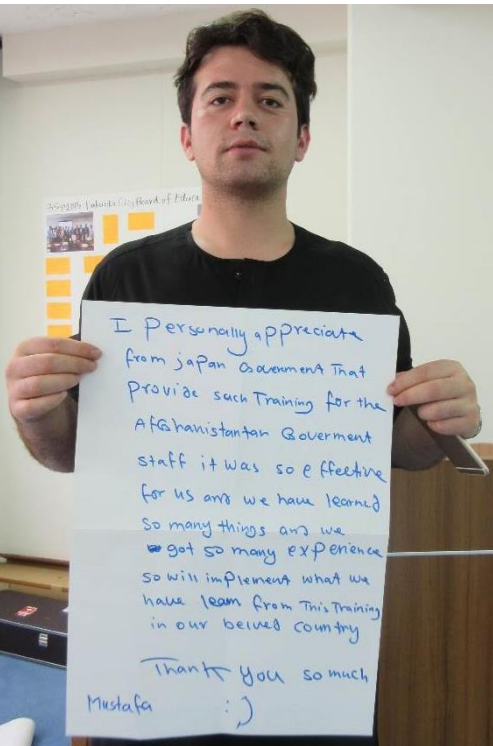 City Board of Educa
I Personally appreciate
from japan Government That
provide such Training for the
Afghanistantan Goverment
staff it was so effective
for us and we have learned
so many things and we
got so many experience
so will implement what we
have learn from This Training
in our beloved country
Thank you so much
Mustafa :)